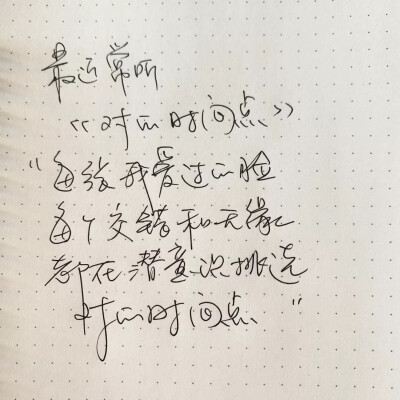 最近常听
《对的时间点》
“每张我爱过的脸
每个交错和无缘
都在潜意识挑选
对的时间点”